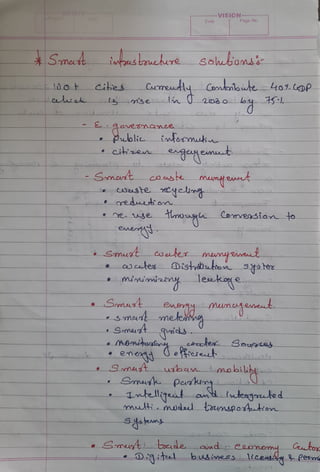 VISION
Date
Page No.
* Smart infrastructure solutions:-
100+ cities currently contribute 40% GDP
which is rise in 2030 by 75%
- E-governance
• Public information
• citizen engagement
- Smart waste mangement
• waste recycling
• reduction
• re-use through Conversion to
energy.
• Smart water mangement
• water Distribution syster
• minimizing leakage
• Smart energy management
• smart metering
• Smart grids.
• Monitoring water Sources
• energy efficient
• Smart urban mobility
• Smark parking
• Intelligent and integrated
multi-modal transportation
Systems
• Smart trade and economy
• Digital business licensing &